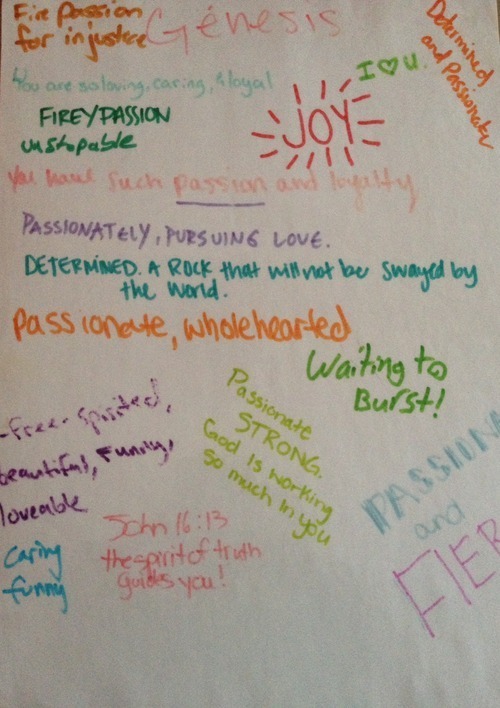 Fire Passion
for injustice
Génesis
Determined
and Passionate
I ♡ U.
You are so loving, caring, & loyal
FIREY PASSION
unstopable
JOY
You have such passion and loyalty
PASSIONATELY, PURSUING LOVE.
DETERMINED. A ROCK that will not be swayed by
the world.
passionate, wholehearted
Waiting to
Burst!
Passionate
STRONG.
God is working
so much in you
-Free-spirited,
beautiful, funny,
loveable
PASSIONA
and
FIER
John 16:13
the spirit of truth
guides you!
caring
funny